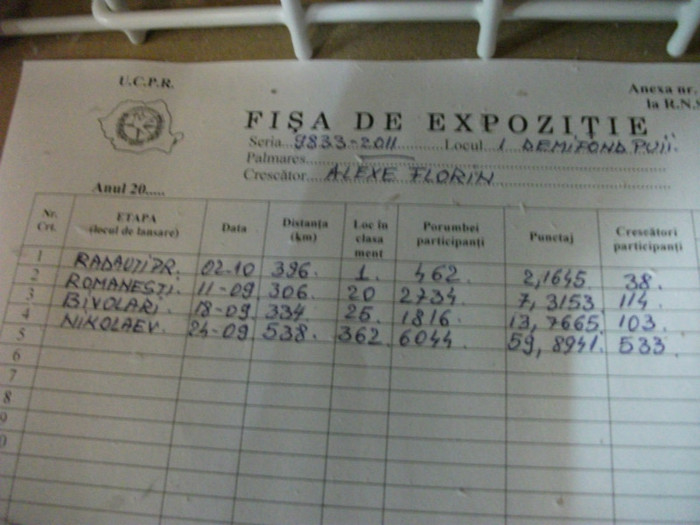 U.C.P.R.
Anexa nr.
la R.N.S
FIȘA DE EXPOZIȚIE
Seria 9833-2011 Locul 1 DEMIFOND PUII.
Palmares
Crescător ALEXE FLORIN
Anul 20.....
Nr. Crt. ETAPA (locul de lansare) Data Distanța (km) Loc în clasa ment Porumbei participanți Punctaj Crescători participanți
1 RADAUTI PR. 02-10 396. 1. 462. 2,1645. 38.
2 ROMANESTI. 11-09. 306. 20 2734. 7,3153. 114.
3 BIVOLARI. 18-09. 334 25. 1816. 13,7665. 103.
4 NIKOLAEV. 24-09. 538. 362. 6044. 59,8941. 533.
5
6
7
8
9
0